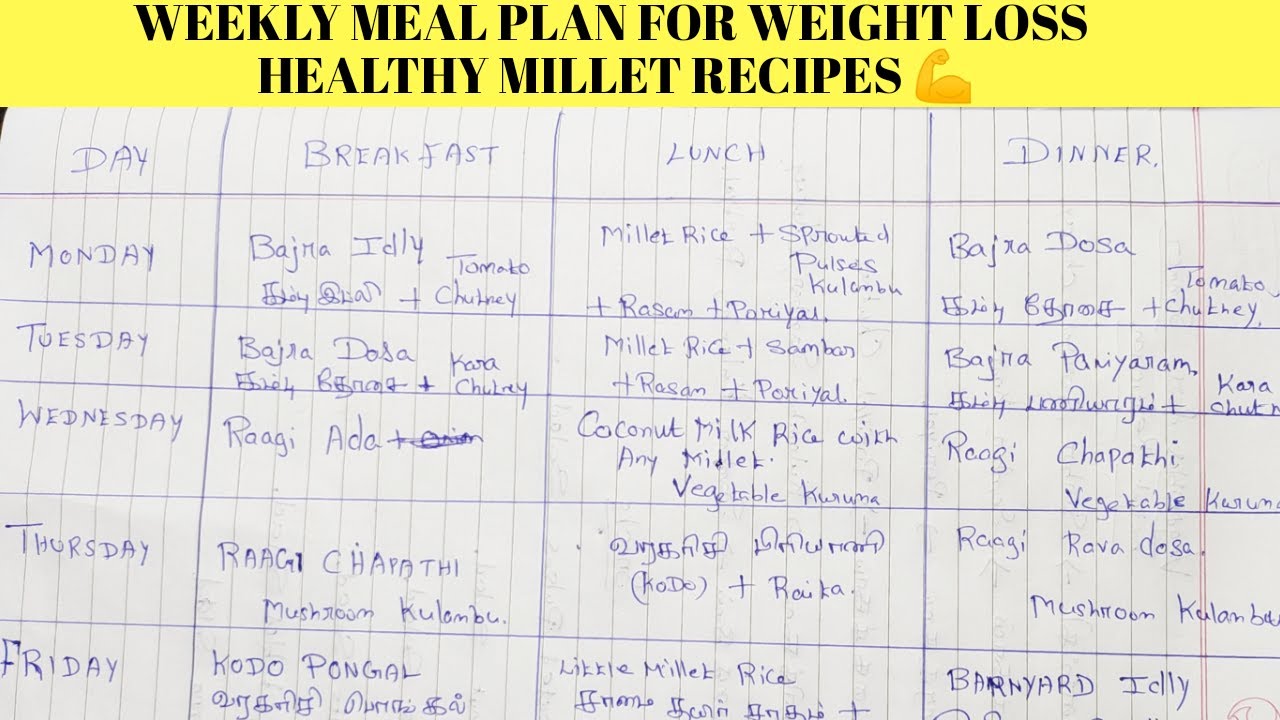 WEEKLY MEAL PLAN FOR WEIGHT LOSS
HEALTHY MILLET RECIPES 💪
DAY BREAKFAST LUNCH DINNER.
MONDAY
Bajra Idly Tomato
கம்பு இட்லி + Chutney
Millet Rice + Sprouted
Pulses
Kulanbu
+ Rasam + Poriyal.
Bajra Dosa
Tomato
கம்பு தோசை + Chutney.
TUESDAY
Bajra Dosa Kara
கம்பு தோசை + Chutney
Millet Rice + Sambar
+ Rasam + Poriyal.
Bajra Paniyaram.
Kara
கம்பு பணியாரம் + Chutn
WEDNESDAY
Raagi Ada +
Coconut Milk Rice with
Any Millet.
Vegetable Kuruma
Raagi Chapathi
Vegetable Kuruma
THURSDAY
RAAGI CHAPATHI
Mushroom Kulambu.
வரகரிசி பிரியாணி
(KODO) + Raita.
Raagi Rava dosa.
Mushroom Kulambu
FRIDAY
KODO PONGAL
வரகரிசி பொங்கல்
Little Millet Rice
சாமை தயிர் சாதம் +
BARNYARD Idly